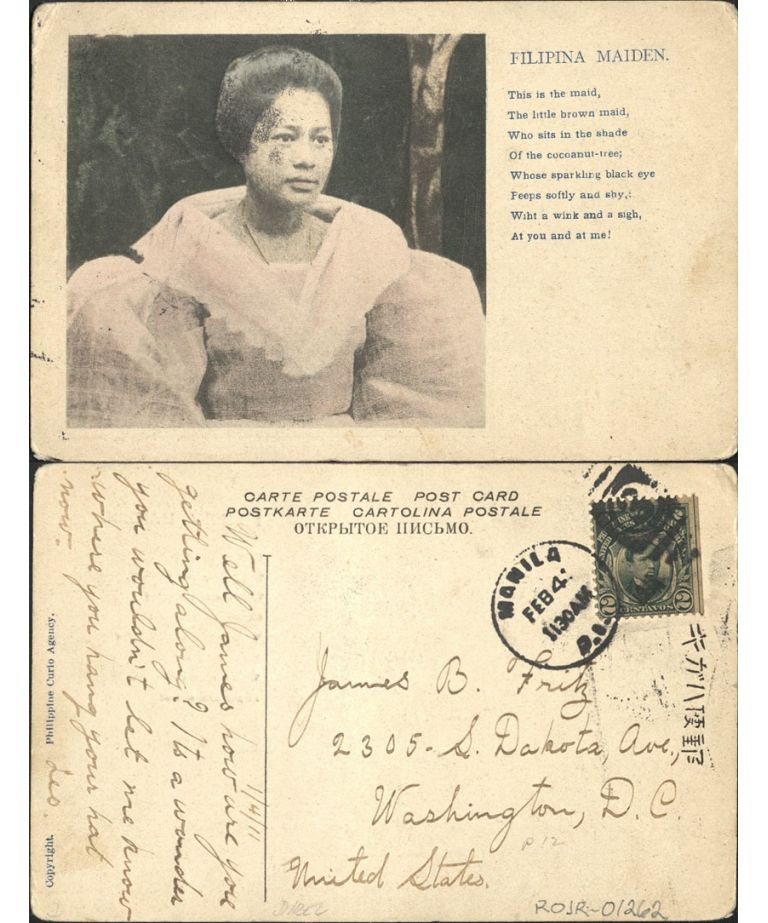 FILIPINA MAIDEN.
This is the maid,
The little brown maid,
Who sits in the shade
Of the cocoanut-tree;
Whose sparkling black eye
Peeps softly and shy,
Wiht a wink and a sigh,
At you and at me!
CARTE POSTALE POST CARD
POSTKARTE CARTOLINA POSTALE
ОТКРЫТОЕ ПИСЬМО.
MANILA
FEB 4
11:30AM
P.I.
2 CENTAVOS 2
1/4/11
Well James how are you
getting along? Its a wonder
you wouldn't let me know
where you hang your hat
now.
Leo.
Copyright. Philippine Curio Agency.
James B. Fritz
2305-S. Dakota, Ave.,
Washington, D.C.
United States.
P12
ROJR-01262